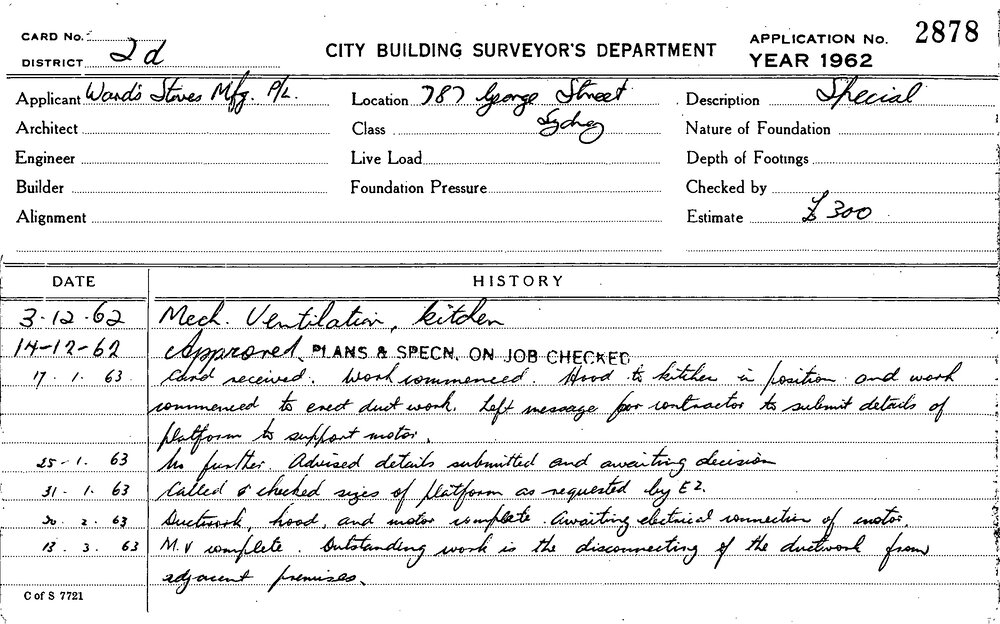 CARD No.
DISTRICT 2d
CITY BUILDING SURVEYOR'S DEPARTMENT
APPLICATION No. 2878
YEAR 1962
Applicant Ward's Stoves Mfg. P/L. Location 787 George Street Description Special
Architect Class Sydney Nature of Foundation
Engineer Live Load Depth of Footings
Builder Foundation Pressure Checked by
Alignment Estimate £300
DATE HISTORY
3-12-62 Mech. Ventilation, kitchen
14-12-62 Approved PLANS & SPECN. ON JOB CHECKED
17.1.63 Card received. Work commenced. Hood to kitchen in position and work
commenced to erect duct work. Left message for contractor to submit details of
platform to support motor.
25-1.63 No further. Advised details submitted and awaiting decision
31.1.63 Called & checked sizes of platform as requested by E2.
20.2.63 Ductwork, hood, and motor complete. Awaiting electrical connection of motor.
13.3.63 M.V complete. Outstanding work is the disconnecting of the ductwork from
adjacent premises.
C of S 7721